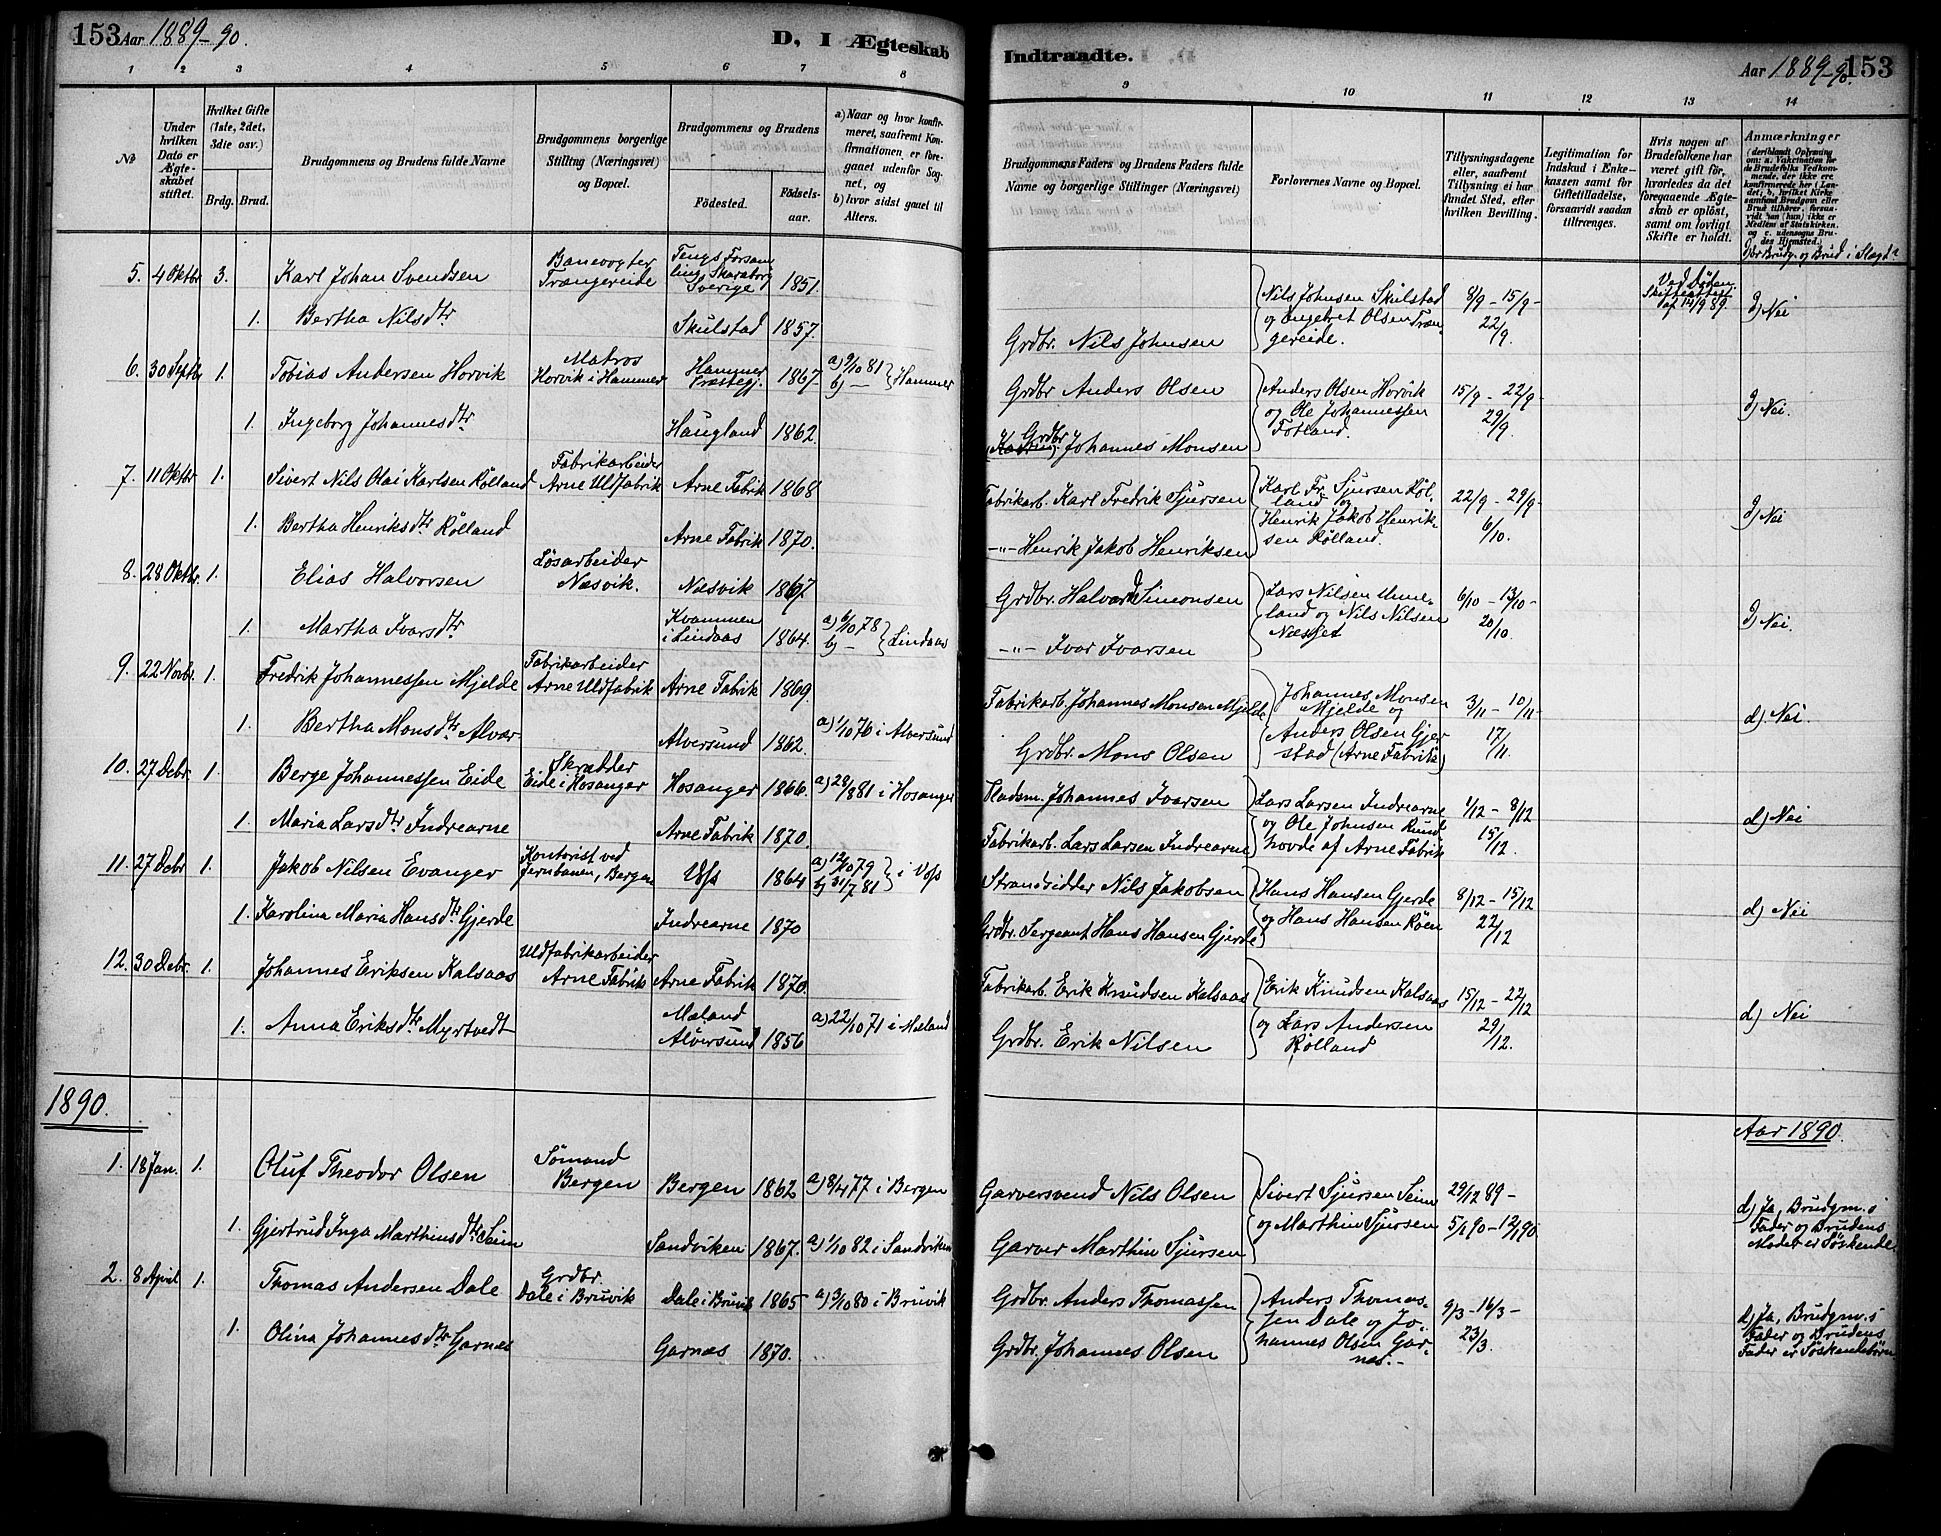 153 Aar 1889-90.
D, I Ægteskab
Indtraadte.
Aar 1889-90. 153
1 2 3 4 5 6 7 8 9 10 11 12 13 14
№
Under hvilken Dato er Ægteskabet stiftet.
Hvilket Gifte (1ste, 2det, 3die osv.)
Brdg. Brud.
Brudgommens og Brudens fulde Navne
Brudgommens borgerlige Stilling (Næringsvei) og Bopæl.
Brudgommens og Brudens
Födested. Födselsaar.
a) Naar og hvor konfirmeret, saafremt Konfirmationen er foregaaet udenfor Sognet, og
b) hvor sidst gaaet til Alters.
Brudgommens Faders og Brudens Faders fulde Navne og borgerlige Stillinger (Næringsvei)
Forlovernes Navne og Bopæl.
Tillysningsdagene eller, saafremt Tillysning ei har fundet Sted, efter hvilken Bevilling.
Legitimation for Indskud i Enkekassen samt for Giftetilladelse, forsaavidt saadan tiltrænges.
Hvis nogen af Brudefolkene har været gift för, hvorledes da det foregaaende Ægteskab er oplöst, samt om lovligt Skifte er holdt.
Anmærkninger (deriblandt Oplysning om: a. Vakcination for de Brudefolks Vedkommende, der ikke ere konfirmerede her i Landet; b. hvilket Kirkesamfund Brudgom eller Brud tilhörer, forsaavidt han (hun) ikke er Medlem af Statskirken, og c. udensogns Brudes Hjemsted.
d) Er Brudg. og Brud i Slægt?
5. 4 Oktbr 3. Karl Johan Svendsen Banevogter Trængereide Tengs Forsamling, Skaraborg Sverige 1851. Nils Johnsen Skulstad 8/9 - 15/9 - Ved Döden. Skifteattest af 14/9 89. d) Nei
1. Bertha Nilsdtr Skulstad 1857. Grdbr. Nils Johnsen og Engebret Olsen Trængereide. 22/9.
6. 30 Septbr 1. Tobias Andersen Horvik Matros Horvik i Hammer Hammer Præstegj. 1867 a) 9/10 81 b) — } Hammer Grdbr Anders Olsen Anders Olsen Horvik 15/9 - 22/9 - d) Nei.
1. Ingeborg Johannesdtr Haugland 1862. Grdbr Johannes Monsen og Ole Johannessen Fotland. 29/9.
7. 11 Oktbr 1. Sivert Nils Olai Karlsen Rölland Fabrikarbeider Arne Uldfabrik Arne Fabrik 1868 Fabrikarb. Karl Fredrik Sjursen Karl Fr. Sjursen Rölland og 22/9 - 29/9 - d) Nei
1. Bertha Henriksdtr Rölland Arne Fabrik 1870. -"- Henrik Jakob Henriksen Henrik Jakob Henriksen Rölland. 6/10.
8. 28 Oktbr. 1. Elias Halvorsen Lösarbeider Næsvik. Næsvik 1867. Grdbr. Halvard Simonsen Lars Nilsen Unneland og Nils Nilsen Næsset 6/10 - 13/10 - d) Nei.
1. Martha Ivarsdtr Kvammen i Lindaas 1864. a) 6/10 78 b) — } Lindaas -"- Ivar Ivarsen 20/10.
9. 22 Novbr. 1. Fredrik Johannessen Mjelde Fabrikarbeider Arne Uldfabrik Arne Fabrik 1869. Fabrikarb. Johannes Monsen Mjelde Johannes Monsen Mjelde og 3/11 - 10/11 - d) Nei.
1. Bertha Monsdtr Alvær Alversund 1862. a) 1/10 76 i Alversund Grdbr. Mons Olsen Anders Olsen Gjerstad (Arne Fabrik) 17/11.
10. 27 Debr. 1. Berge Johannessen Eide Skrædder Eide i Hosanger Hosanger 1866. a) 28/8 81 i Hosanger Pladsm. Johannes Ivarsen Lars Larsen Indrearne 1/12 - 8/12 d) Nei
1. Maria Larsdtr Indrearne Arne Fabrik 1870. Fabrikarb. Lars Larsen Indrearne og Ole Johnsen Rundhovde af Arne Fabrik 15/12.
11. 27 Debr 1. Jakob Nilsen Evanger Kontorist ved Jernbanen, Bergen Voss 1864 a) 12/10 79 b) 31/7 81 } i Voss Strandsidder Nils Jakobsen Hans Hansen Gjerde 8/12 - 15/12 d) Nei
1. Karolina Maria Hansdtr Gjerde Indrearne 1870 Grdbr. Sergeant Hans Hansen Gjerde og Hans Hansen Röen 22/12
12. 30 Debr. 1. Johannes Eriksen Kalsaas Uldfabrikarbeider Arne Fabrik Arne Fabrik 1870. Fabrikarb. Erik Knudsen Kalsaas Erik Knudsen Kalsaas 15/12 - 22/12 d) Nei
1. Anna Eriksdtr Myrtvedt Mæland Alversund 1856 a) 22/10 71 i Mæland Grdbr. Erik Nilsen og Lars Andersen Rölland 29/12.
1890. Aar 1890.
1. 18 Jan. 1. Oluf Theodor Olsen Sömand Bergen Bergen 1862 a) 8/4 77 i Bergen Garversvend Nils Olsen Sivert Sjursen Seim 29/12 89 - d) Ja, Brudgm.s Fader og Brudens Moder er Söskende.
1. Gjertrud Inga Marthinsdtr Seim Sandviken 1867. a) 1/10 82 i Sandviken Garver Marthin Sjursen og Marthin Sjursen 5/1 90 - 12/1 90.
2. 8 April 1. Thomas Andersen Dale Grdbr. Dale i Bruvik Dale i Bruvik 1865 a) 3/10 80 i Bruvik Grdbr. Anders Thomassen Anders Thomassen Dale og Johannes Olsen Garnæs.- 9/3 - 16/3 - d) Ja, Brudgm.s Fader og Brudens Fader er Söskendebörn
1. Olina Johannesdtr Garnæs Garnæs 1870. Grdbr. Johannes Olsen 23/3.